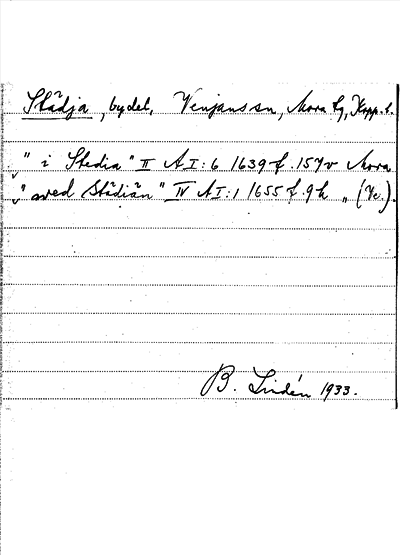 Städja, bydel, Venjans sn, Mora tg, Kopp. l.
" i Stedia" II AI:6 1639 f. 157v Mora
" wed Städiän" IV AI:1 1655 f. 9h " (Ve.).
B. Lindén 1933.